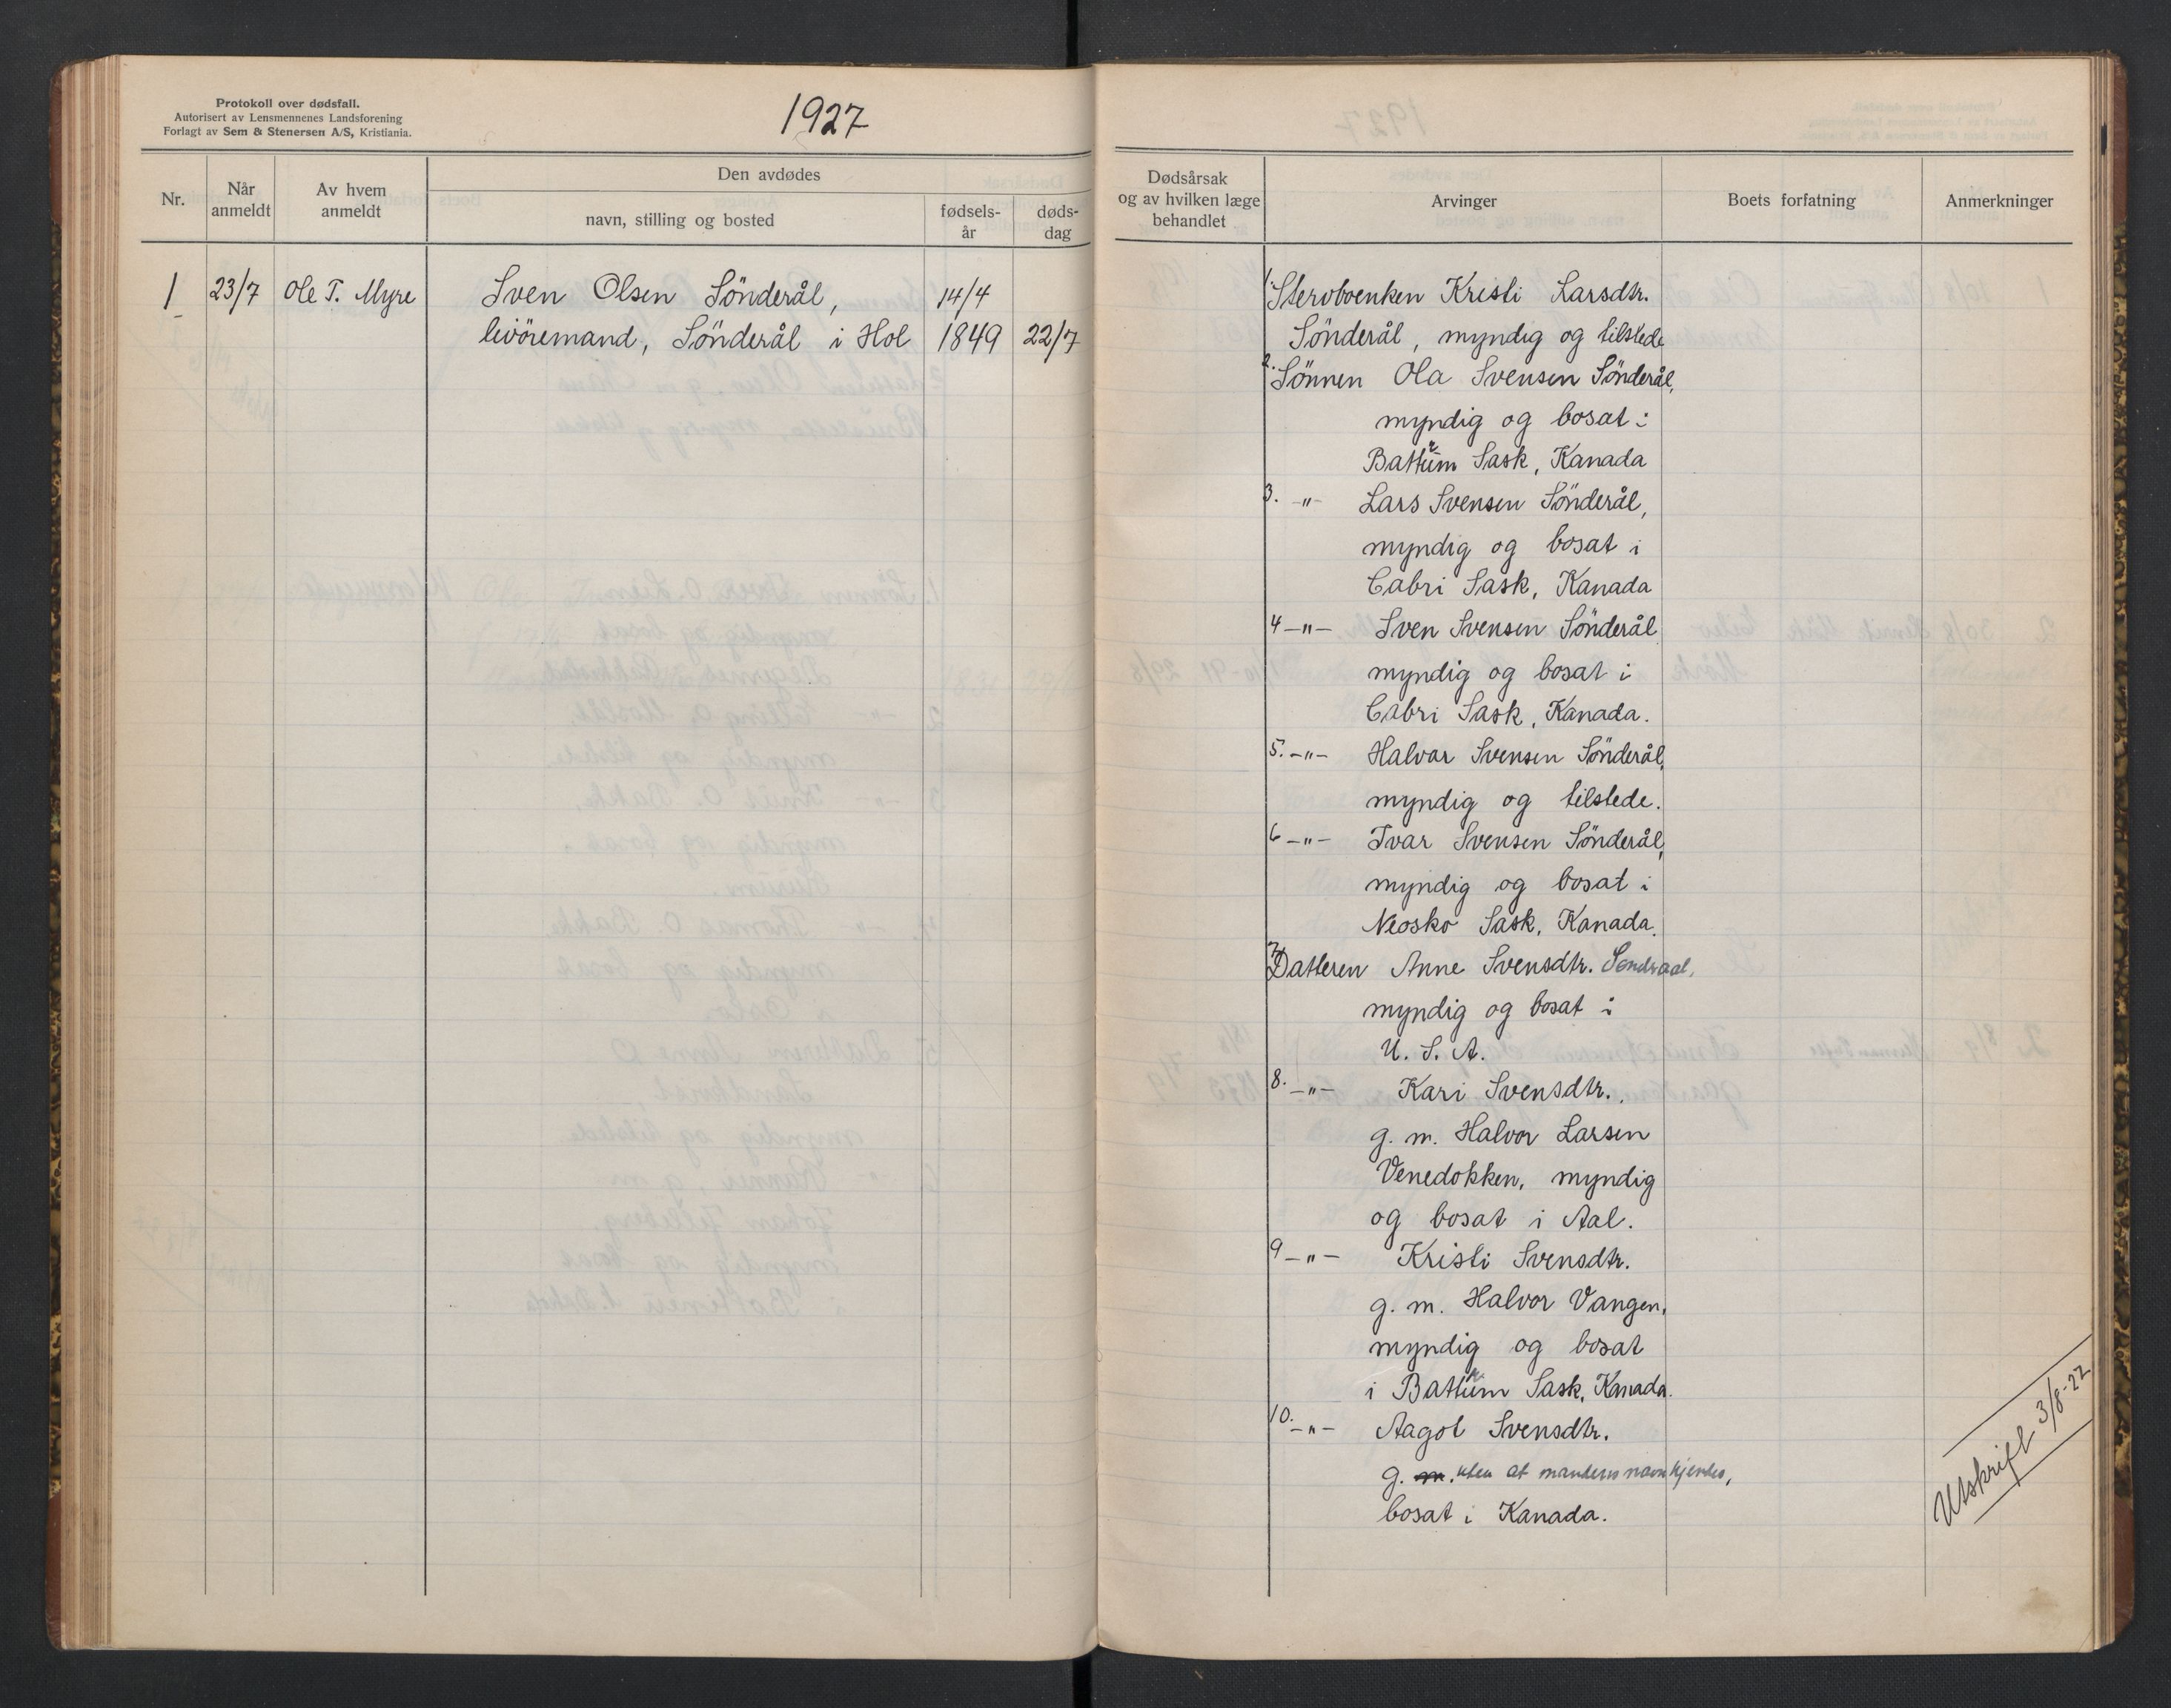 Protokoll over dødsfall.
Autorisert av Lensmennenes Landsforening
Forlagt av Sem & Stenersen A/S, Kristiania.
1927
Nr.
Når anmeldt
Av hvem anmeldt
Den avdødes
navn, stilling og bosted
fødsels-år
døds-dag
1 23/7 Ole T. Myre Sven Olsen Sönderål, 14/4
livöremand, Sönderål i Hol 1849 22/7
Dødsårsak
og av hvilken læge
behandlet
Arvinger
Boets forfatning
Anmerkninger
1. Stervboenken Kristi Larsdtr.
Sönderål, myndig og tilstede
2. Sönnen Ola Svensen Sönderål,
myndig og bosat i
Battum Sask, Kanada
3. -"- Lars Svensen Sönderål,
myndig og bosat i
Cabri Sask, Kanada
4 -"- Sven Svensen Sönderål
myndig og bosat i
Cabri Sask, Kanada.
5. -"- Halvar Svensen Sönderål,
myndig og tilstede.
6 -"- Ivar Svensen Sönderål,
myndig og bosat i
Neosko Sask, Kanada.
7 Datteren Anne Svensdtr. Sendraal,
myndig og bosat i
U. S. A.
8. -"- Kari Svensdtr.,
g. m. Halvor Larsen
Venedokken, myndig
og bosat i Aal.
9 -"- Kristi Svensdtr.
g. m. Halvor Vangen,
myndig og bosat
i Battum Sask, Kanada.
10. -"- Aagot Svensdtr.
g. m. uten at mandens navn kjendes,
bosat i Kanada.
Utskrift 3/8-22